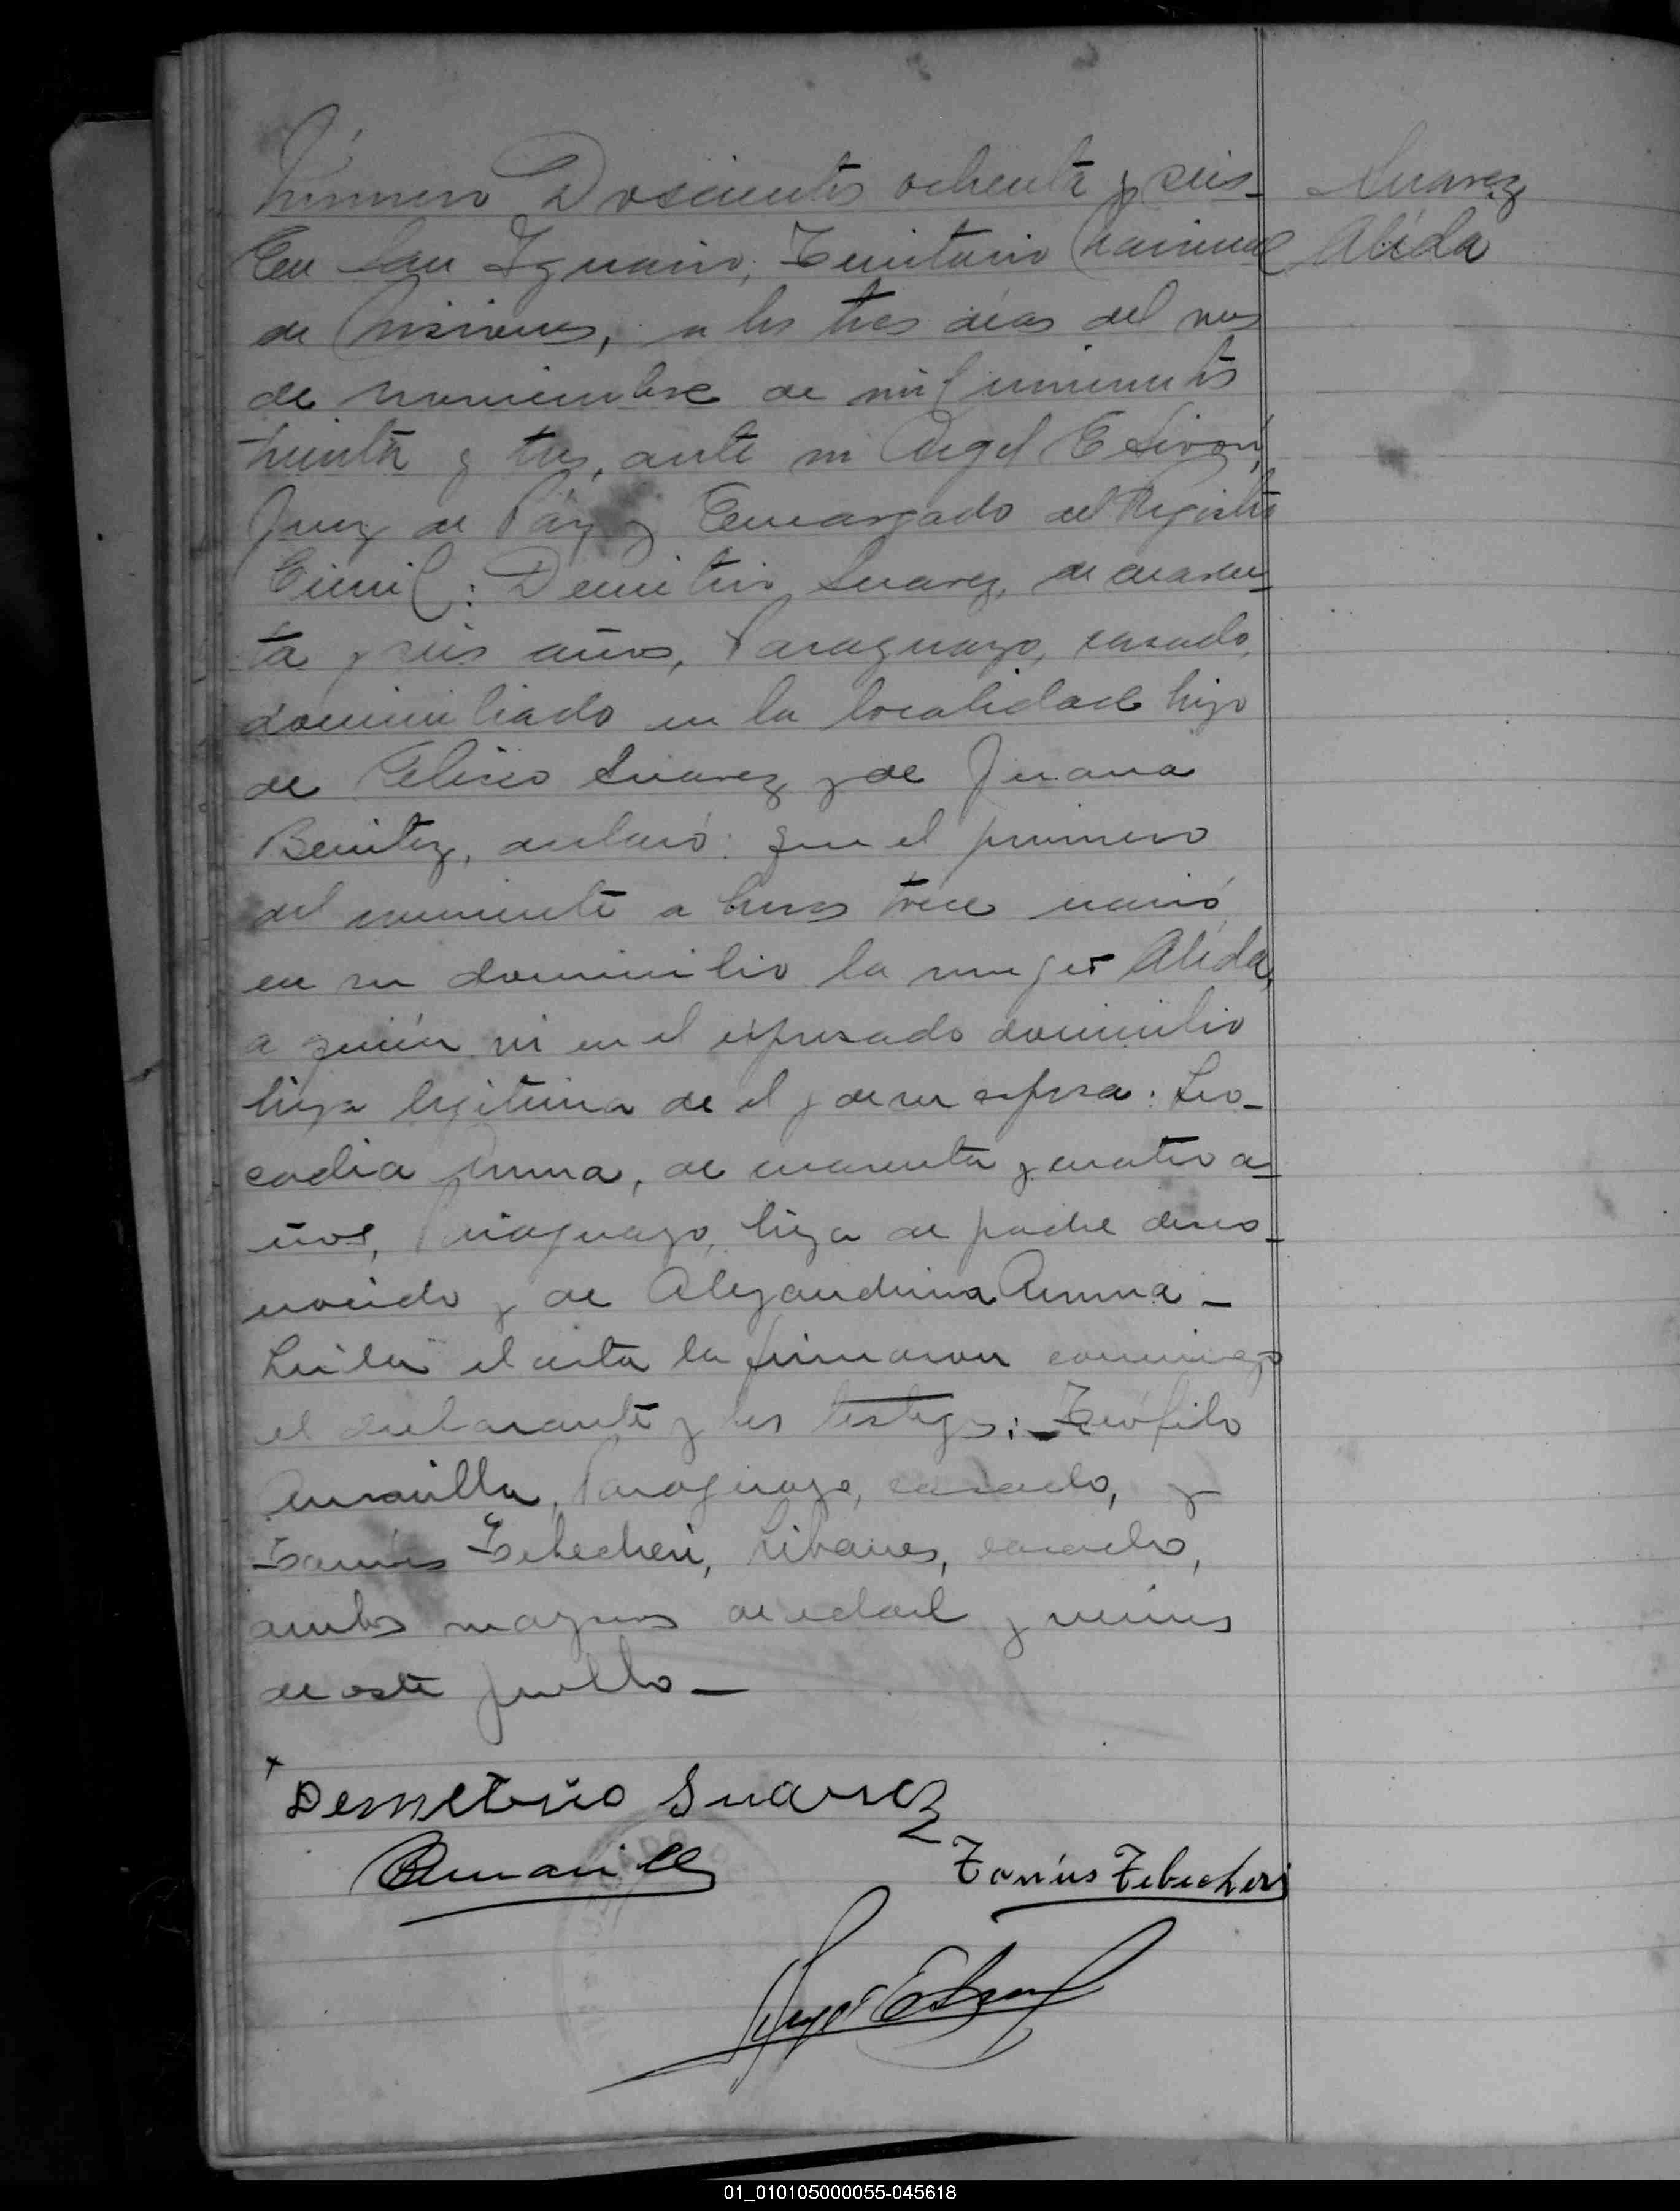 Número Doscientos ochenta y seis_
Suarez
Alida
En San Ignacio, Territorio Nacional
de Misiones, a los tres días del mes
de noviembre de mil novecientos
treinta y tres, ante mi Angel E
Juez de Páz y Encargado del Registro
Civil: Demetrio Suarez, de cuaren_
ta y seis años, Paraguayo, casado,
domiciliado en la localidad hijo
de Eliseo Suarez y de Juana
Benitez, declaró: que el primero
del corriente a horas trece nació
en su domicilio la mujer Alida,
a quién vi en el expresado domicilio
hija legitima de el y de su esposa: Leo_
cadia, de cuarenta y cuatro a_
ños, Paraguayo, hija de padre desco_
nocido y de Alejandrina
Leída el acta la firmaron conmigo
el declarante y los testigos:_ Teófilo
Amarilla, Paraguayo, casado, y
Tanús Tebecheri, Libanes, casado,
ambos mayores de edad y vecinos
de este pueblo_
x Demetrio Suarez
Amarilla
Tanús Tebecheri
01_010105000055-045618